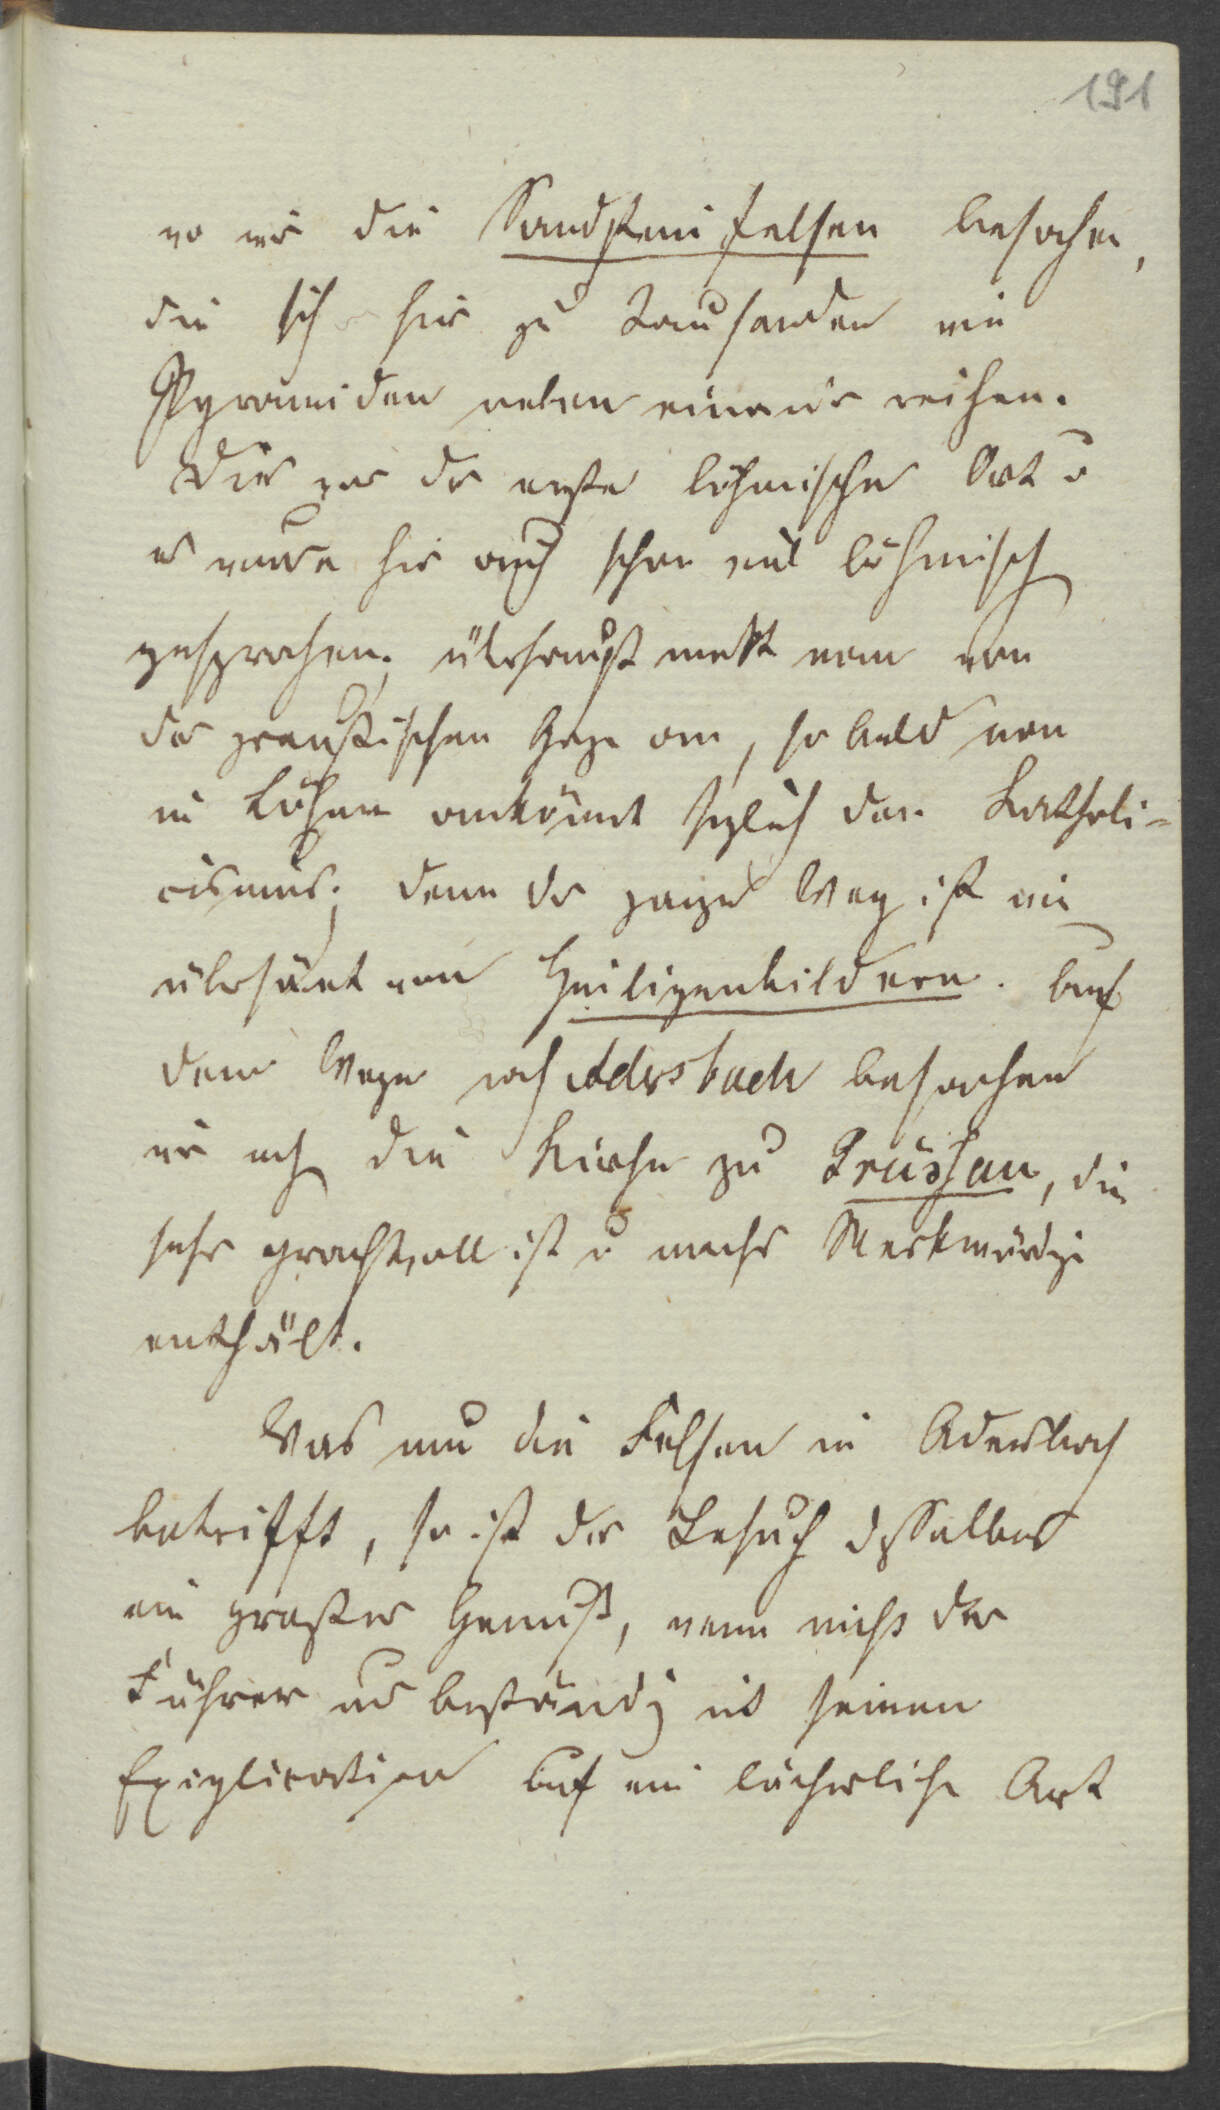 191
wo wir die Sandsteinfelsen besahen,
die sich hier zu Tausenden wie
Pyramiden neben einander reihen.
Dies war der erste böhmische Ort u
es wurde hier auch schon viel böhmisch
gesprochen. überhaupt merkt man von
der preußischen Grenze an, so bald man
in Böhmen ankömmt sogleich den Katholi-
cismus; denn der ganze Weg ist wie
übersäet von Heiligenbildern. Auf
dem Wege nach Adersbach besahen
wir noch die Kirche zu Grüssau, die
sehr prachtvoll ist u mehr Merkwürdige
enthält.
Was nun die Felsen in Adersbach
betrifft, so ist der Besuch desselben
ein großer Genuß, wenn nicht der
Führer uns beständig mit seinen
Explication auf eine lächerliche Art